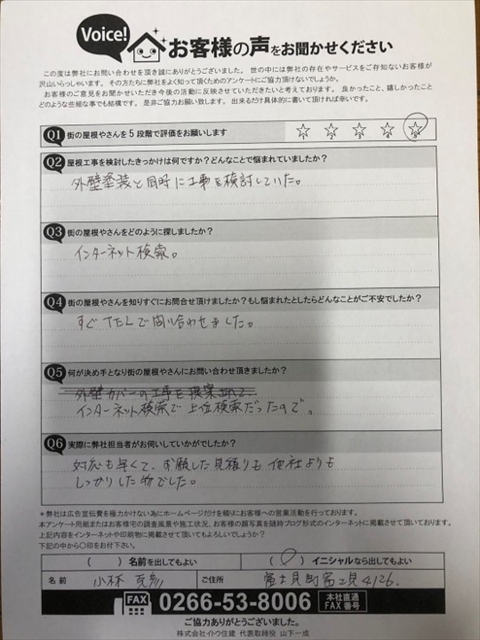 Voice!
お客様の声をお聞かせください
この度は弊社にお問い合わせを頂き誠にありがとうございました。世の中には弊社の存在やサービスをご存知ないお客様が
沢山いらっしゃいます。その方たちに弊社をよく知って頂くためのアンケートにご協力頂けないでしょうか。
お客様のご意見をお聞かせいただき今後の活動に反映させていただきたいと考えております。良かったこと、嬉しかったこと
どのような些細な事でも結構です。是非ご協力お願い致します。出来るだけ具体的に書いて頂ければ幸いです。
Q1 街の屋根やさんを5段階で評価をお願いします
1 2 3 4 5
Q2 屋根工事を検討したきっかけは何ですか?どんなことで悩まれていましたか?
外壁塗装と同時に工事を検討していた。
Q3 街の屋根やさんをどのように探しましたか?
インターネット検索。
Q4 街の屋根やさんを知りすぐにお問合せ頂けましたか?もし悩まれたとしたらどんなことがご不安でしたか?
すぐTELで問い合わせました。
Q5 何が決め手となり街の屋根やさんにお問い合わせ頂きましたか?
外壁カバーの工事を提案されて
インターネット検索で上位検索だったので。
Q6 実際に弊社担当者がお伺いしていかがでしたか?
対応も早くて、お願した見積りも他社よりも
しっかりした物でした。
*弊社は広告宣伝費を極力かけない為にホームページだけを頼りにお客様への営業活動を行っております。
本アンケート用紙またはお客様宅の調査風景や施工状況、お客様の顔写真を随時ブログ形式のインターネットに掲載させて頂いております。
上記内容をインターネットや印刷物に掲載させて頂いてもよろしいでしょうか?
下記の中から〇印をお付下さい。
( ) 名前を出してもよい (〇) イニシャルなら出してもよい
名前 小林 ご住所 富士見町富士見4126.
FAX 0266-53-8006 本社直通 FAX番号
ご協力ありがとうございました。
株式会社イトウ住建 代表取締役 山下一成